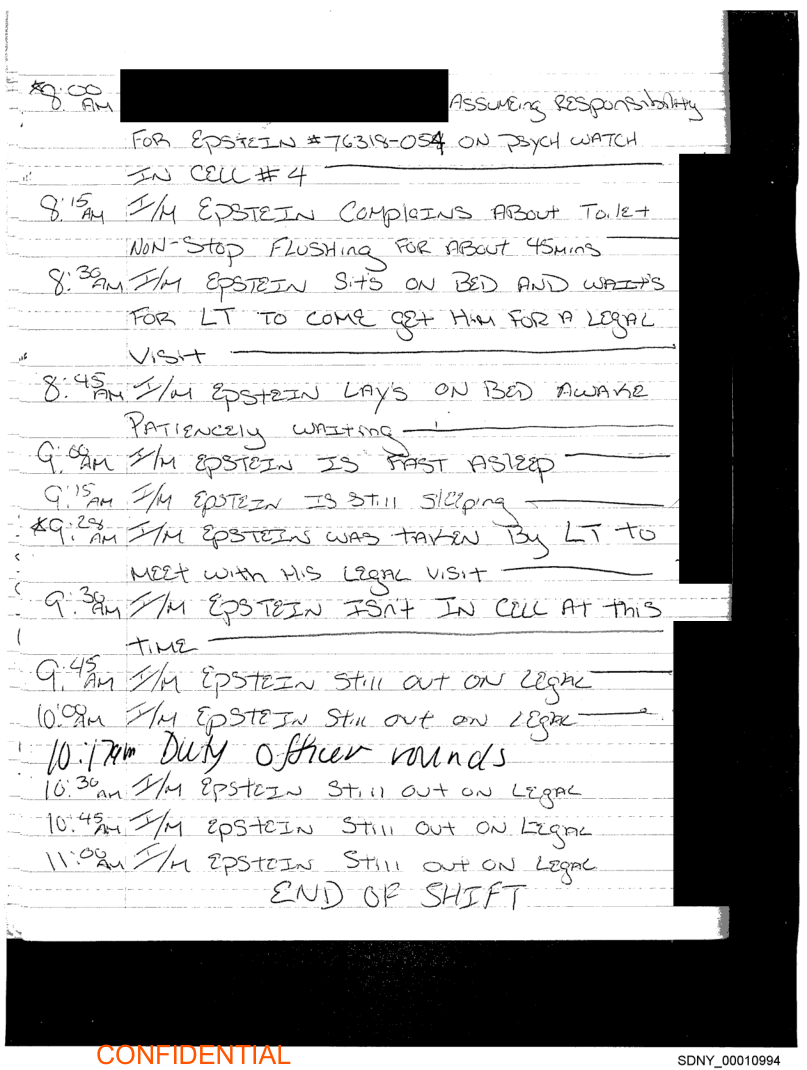 *8:00 AM ASSUMEing RESponsibility
FOR EPSTEIN #76318-054 ON PSYCH WATCH
IN CELL # 4
8:15 AM I/M EPSTEIN ComplaINS ABout Toilet
NON-Stop FLUSHing FOR ABOUT 45Mins
8:30 AM I/M EPSTEIN Sit's ON BED AND WAIt's
FOR LT TO COME gEt HiM FOR A LEgAL
Visit
8:45 AM I/M EpstEIN LAY's ON BED AWAKE
PATIENCEly WAItINg
9:00 AM I/M EPSTEIN IS FAST ASlEEp
9:15 AM I/M EpstEIN IS Still SlEEping
*9:28 AM I/M EPSTEIN WAS tAKEN By LT to
MEEt with His LEgAL Visit
9:30 AM I/M EpSTEIN ISn't IN CEll At this
TiME
9:45 AM I/M EpSTEIN Still out ON LEgAL
10:00 AM I/M EpSTEIN Still out on LEgAL
10:17am Duty Officer rounds
10:30 AM I/M EpstEIN Still Out on LEgAL
10:45 AM I/M EpstEIN Still Out ON LEgAL
11:00 AM I/M EPSTEIN Still out ON LEgAL
END OF SHIFT
CONFIDENTIAL
SDNY_00010994